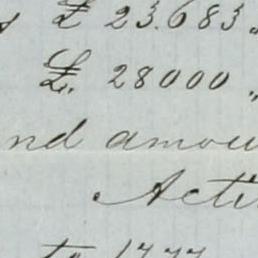 £ 23.683
£. 28000 "
nd amou
Acti
to 1777